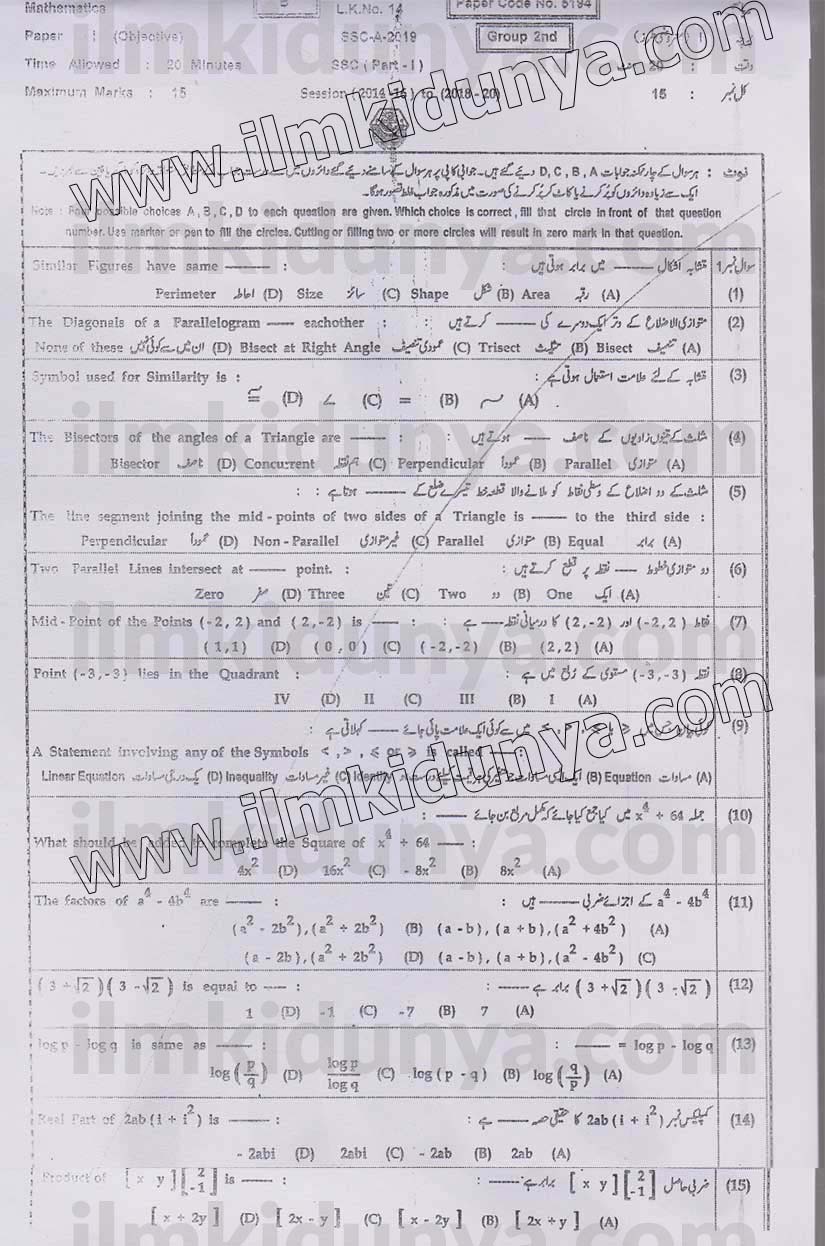 Mathematics L.K.No. 14 Paper Code No. 6194
Paper : I (Objective) SSC-A-2019 Group 2nd
Time Allowed : 20 Minutes SSC (Part - I) 20 : وقت
Maximum Marks : 15 Session (2014 -16) to (2018 - 20) 15 : کل نمبر
www.ilmkidunya.com
نوٹ : ہر سوال کے چار ممکنہ جوابات D, C, B, A دیئے گئے ہیں۔ جوابی کاپی پر ہر سوال کے سامنے دیئے گئے دائروں میں سے
ایک سے زیادہ دائروں کو پُر کرنے یا کاٹ کر پُر کرنے کی صورت میں مذکورہ جواب غلط تصور ہوگا۔
Note : Four possible choices A, B, C, D to each question are given. Which choice is correct, fill that circle in front of that question
number. Use marker or pen to fill the circles. Cutting or filling two or more circles will result in zero mark in that question.
سوال نمبر 1 متشابہ اشکال —— میں برابر ہوتی ہیں :
Similar Figures have same —— :
(1) (A) رقبہ Area (B) شکل Shape (C) سائز Size (D) احاطہ Perimeter
(2) متوازی الاضلاع کے وتر ایک دوسرے کی —— کرتے ہیں :
The Diagonals of a Parallelogram —— eachother :
(A) تنصیف Bisect (B) مثلیث Trisect (C) عمودی تنصیف Bisect at Right Angle (D) ان میں سے کوئی نہیں None of these
(3) متشابہ کے لئے علامت استعمال ہوتی ہے :
Symbol used for Similarity is :
(A) ~ (B) = (C) ∠ (D) ≅
(4) مثلث کے تینوں زاویوں کے ناصف —— ہوتے ہیں :
The Bisectors of the angles of a Triangle are —— :
(A) متوازی Parallel (B) عموداً Perpendicular (C) ہم نقطہ Concurrent (D) ناصف Bisector
(5) مثلث کے دو اضلاع کے وسطی نقاط کو ملانے والا قطعہ خط تیسرے ضلع کے —— ہوتا ہے :
The line segment joining the mid - points of two sides of a Triangle is —— to the third side :
(A) برابر Equal (B) متوازی Parallel (C) غیر متوازی Non - Parallel (D) عموداً Perpendicular
(6) دو متوازی خطوط —— نقطہ پر قطع کرتے ہیں :
Two Parallel Lines intersect at —— point. :
(A) ایک One (B) دو Two (C) تین Three (D) صفر Zero
(7) نقاط (-2, 2) اور (2, -2) کا درمیانی نقطہ —— ہے :
Mid - Point of the Points (-2, 2) and (2, -2) is —— :
(A) (2, 2) (B) (-2, -2) (C) (0, 0) (D) (1, 1)
(8) نقطہ (-3, -3) مستوی کے ربع میں ہے :
Point (-3, -3) lies in the Quadrant :
(A) I (B) III (C) II (D) IV
(9) میں سے کوئی ایک علامت پائی جائے —— کہلاتی ہے :
A Statement involving any of the Symbols <, >, ⩽ or ⩾ is called
(A) مساوات Equation (B) Identity (C) غیر مساوات Inequality (D) یک درجی مساوات Linear Equation
(10) جملہ x⁴ + 64 میں کیا جمع کیا جائے کہ مکمل مربع بن جائے —— :
What should be added to complete the Square of x⁴ + 64 —— :
(A) 8x² (B) - 8x² (C) 16x² (D) 4x²
(11) a⁴ - 4b⁴ کے اجزائے ضربی —— ہیں :
The factors of a⁴ - 4b⁴ are —— :
(A) (a - b), (a + b), (a² + 4b²) (B) (a² - 2b²), (a² + 2b²)
(C) (a - b), (a + b), (a² - 4b²) (D) (a - 2b), (a² + 2b²)
(12) (3 + √2)(3 - √2) برابر ہے —— :
(3 + √2)(3 - √2) is equal to —— :
(A) 7 (B) -7 (C) -1 (D) 1
(13) log p - log q = —— :
log p - log q is same as —— :
(A) log (q/p) (B) log (p - q) (C) log p / log q (D) log (p/q)
(14) کمپلیکس نمبر 2ab (i + i²) کا حقیقی حصہ —— ہے :
Real Part of 2ab (i + i²) is —— :
(A) 2ab (B) - 2ab (C) 2abi (D) - 2abi
(15) ضربی حاصل [x y] [2 -1] برابر ہے —— :
Product of [x y] [2 -1] is —— :
(A) [2x + y] (B) [x - 2y] (C) [2x - y] (D) [x + 2y]
www.ilmkidunya.com
ilmkidunya.com